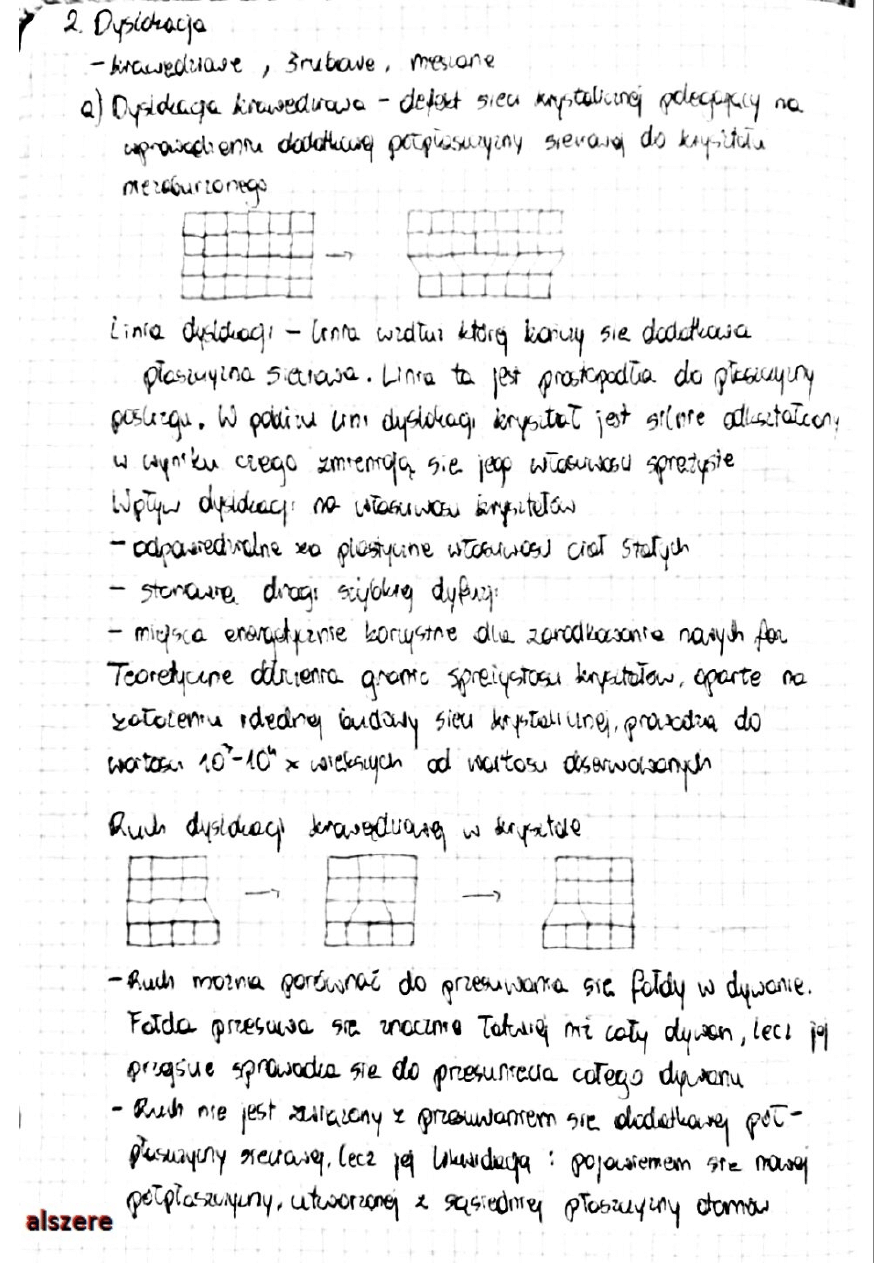 2. Dyslokacja
- krawędziowe, śrubowe, mieszane
a) Dyslokacja krawędziowa - defekt sieci krystalicznej polegający na
wprowadzeniu dodatkowej półpłaszczyzny sieciowej do kryształu
niezaburzonego
Linia dyslokacji - linia wzdłuż której kończy się dodatkowa
płaszczyzna sieciowa. Linia ta jest prostopadła do płaszczyzny
poślizgu. W pobliżu linii dyslokacji kryształ jest silnie odkształcony
w wyniku czego zmieniają się jego własciwości sprężyste
Wpływ dyslokacji na własciwości kryształów
- odpowiedzialne za plastyczne własciwości ciał stałych
- stanowią drogi szybkiej dyfuzji
- miejsca energetycznie korzystne dla zarodkowania nowych faz
Teoretyczne obliczenia granic sprężystości kryształów, oparte na
założeniu idealnej budowy sieci krystalicznej, prowadzą do
wartości x większych od wartości obserwowanych
Ruch dyslokacji krawędziowej w krysztale
- Ruch można porównać do przesuwania się fałdy w dywanie.
Fałda przesuwa się znacznie łatwiej niż cały dywan, lecz jej
przejście sprowadza się do przesunięcia całego dywanu
- Ruch nie jest związany z przesuwaniem się dodatkowej pół-
płaszczyzny sieciowej, lecz jej likwidacją i pojawieniem się nowej
półpłaszczyzny, utworzonej z sąsiedniej płaszczyzny atomów
alszere